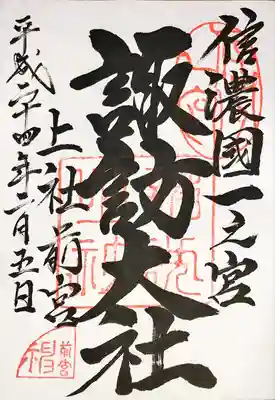 信濃國一之宮
諏訪大社
上社前宮
平成二十四年二月五日
前宮